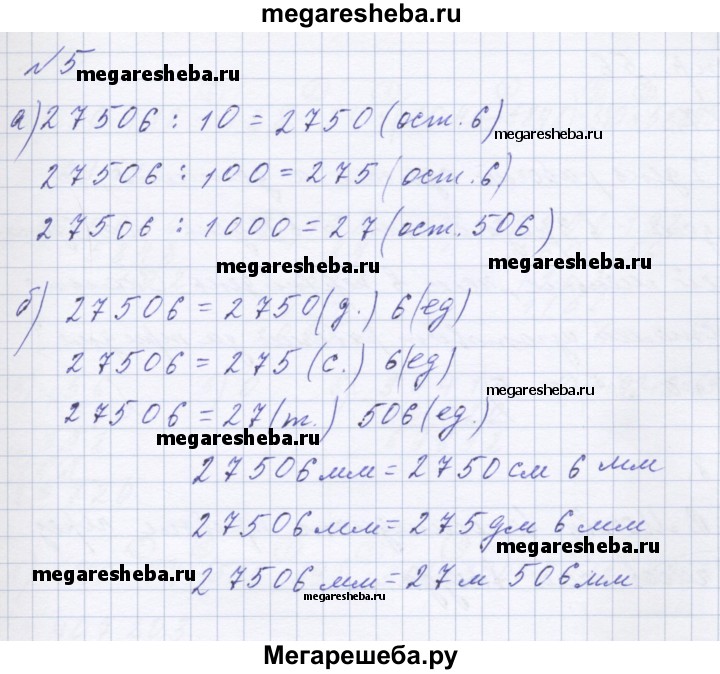 megaresheba.ru
№5
megaresheba.ru
а) 27506 : 10 = 2750 (ост. 6)
megaresheba.ru
27506 : 100 = 275 (ост. 6)
27506 : 1000 = 27 (ост. 506)
megaresheba.ru
megaresheba.ru
б) 27506 = 2750 (д.) 6 (ед)
27506 = 275 (с.) 6 (ед)
megaresheba.ru
27506 = 27 (т.) 506 (ед.)
megaresheba.ru
27506 мм = 2750 см 6 мм
27506 мм = 275 дм 6 мм
megaresheba.ru
megaresheba.ru
27506 мм = 27 м 506 мм
megaresheba.ru
Мегарешеба.ру